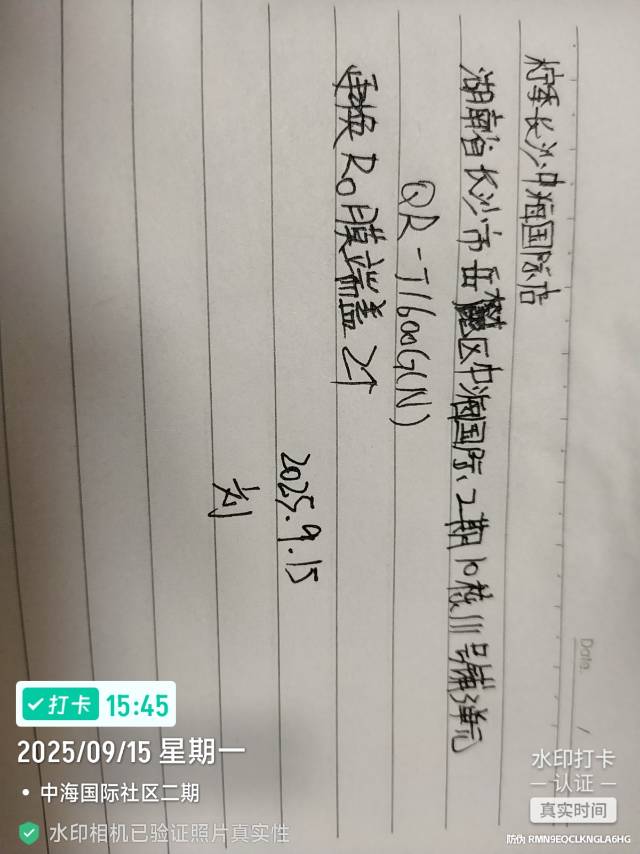 柠季长沙中海国际店
湖南省长沙市岳麓区中海国际二期10栋111号铺3单元
QR-J1600G(N)
更换RO膜端盖2个
2025.9.15
刘
Date. /
打卡 15:45
2025/09/15 星期一
中海国际社区二期
水印相机已验证照片真实性
水印打卡
认证
真实时间
防伪 RMN9EQCLKNGLA6HG